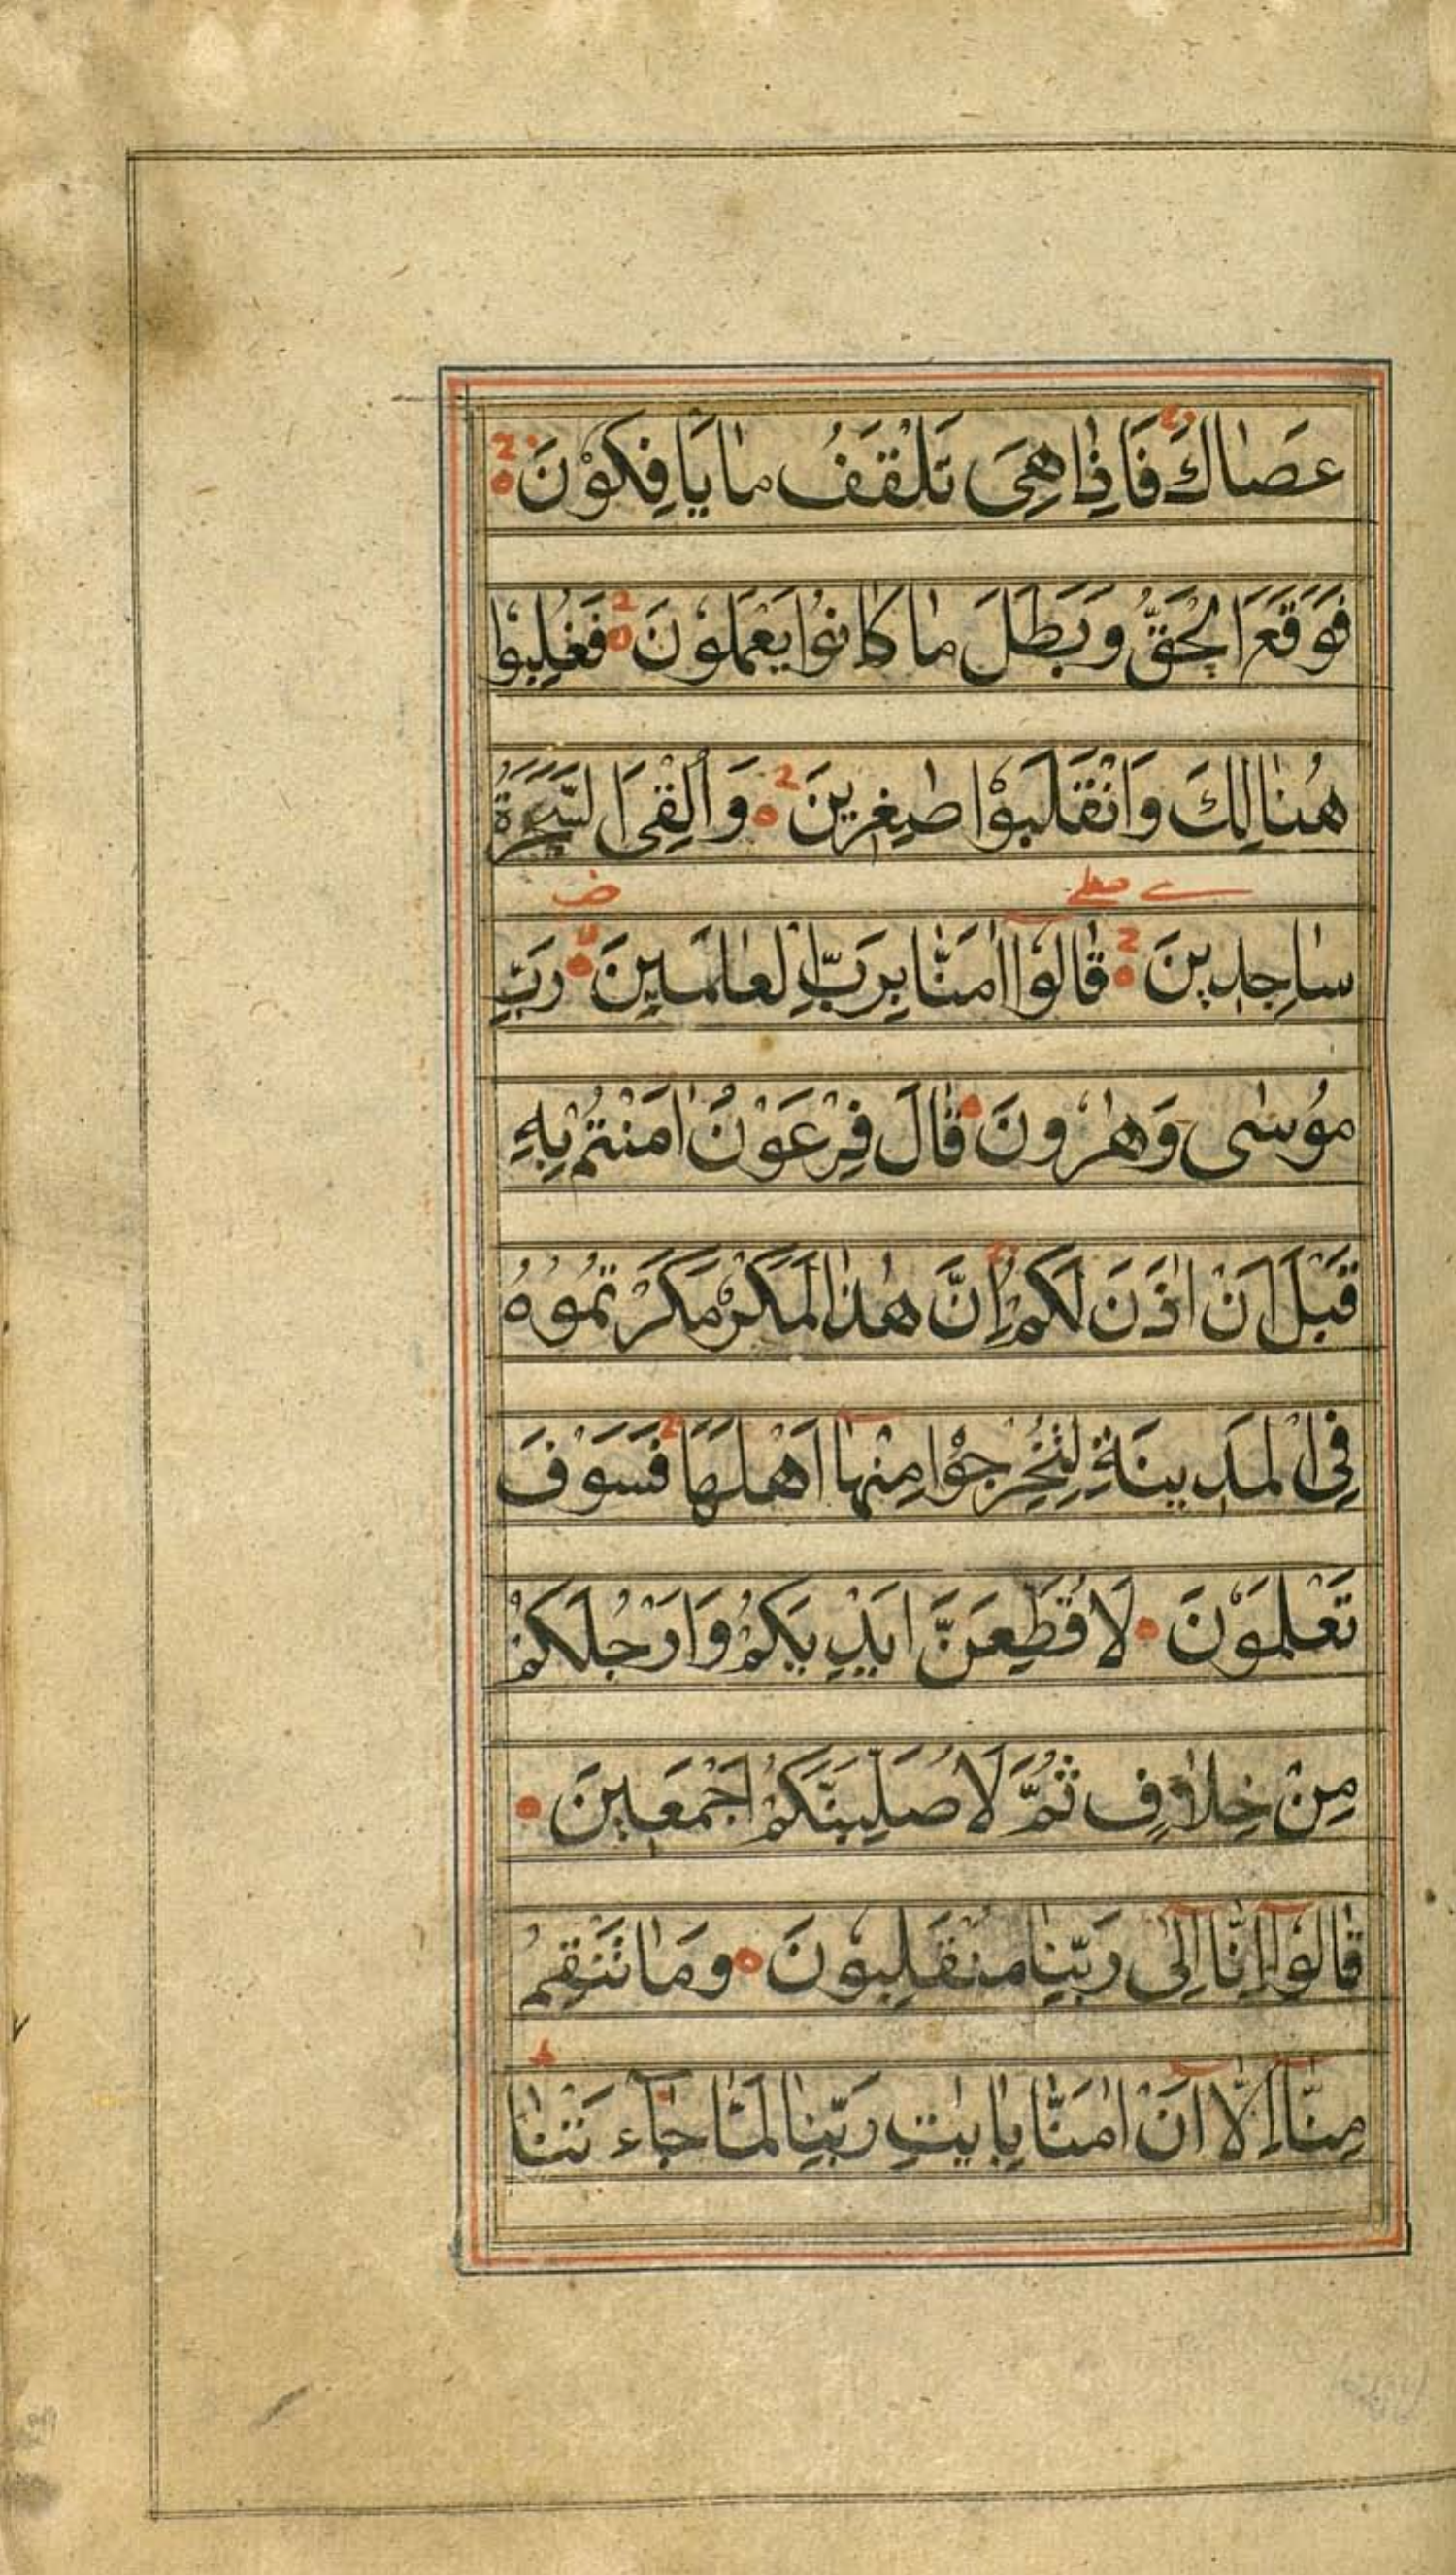 عَصٰاكَ فَاِذٰا هِىَ تَلْقَفُ مٰا يَا فِكُوْنَ
فَوَقَعَ الْحَقُّ وَبَطَلَ مٰا كٰانُوْا يَعْمَلُوْنَ فَغُلِبُوْا
هُنٰالِكَ وَانْقَلَبُوْا صٰغِرِينَ وَاُلْقِىَ السَّحَرَةُ
سٰاجِدِينَ قٰالُوْا اٰمَنّٰا بِرَبِّ الْعٰالَمِينَ رَبِّ
مُوسٰى وَهٰرُونَ قٰالَ فِرْعَوْنُ اٰمَنْتُمْ بِهٖ
قَبْلَ اَنْ اٰذَنَ لَكُمْ اِنَّ هٰذٰا لَمَكْرٌ مَكَرْتُمُوْهُ
فِى الْمَدِينَةِ لِتُخْرِجُوْا مِنْهٰا اَهْلَهَا فَسَوْفَ
تَعْلَمُوْنَ لَاُقَطِّعَنَّ اَيْدِيَكُمْ وَاَرْجُلَكُمْ
مِنْ خِلٰافٍ ثُمَّ لَاُصَلِّبَنَّكُمْ اَجْمَعِينَ
قٰالُوْا اِنّٰا اِلٰى رَبِّنٰا مُنْقَلِبُوْنَ وَمٰا تَنْقِمُ
مِنّٰا اِلّٰا اَنْ اٰمَنّٰا بِاٰيٰتِ رَبِّنٰا لَمّٰا جٰاۤءَتْنٰا